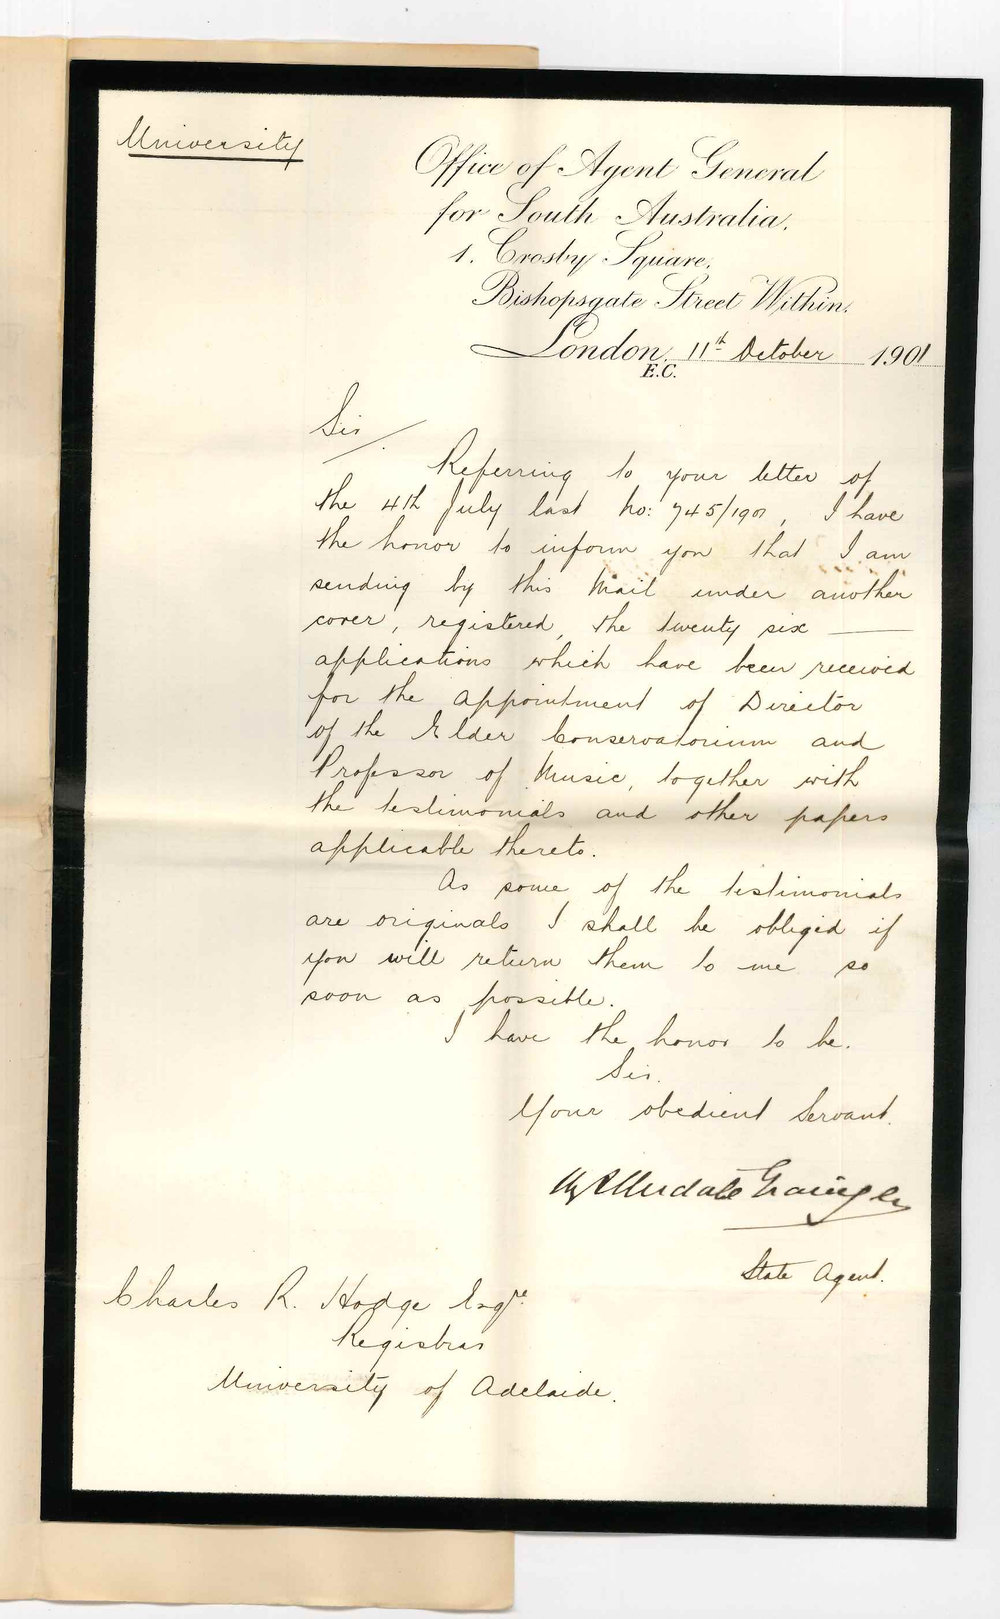 University
Office of Agent General
for South Australia.
1. Crosby Square,
Bishopsgate Street Within.
London, 11th October 1901
E.C.
Sir
Referring to your letter of
the 4th July last No: 745/1901, I have
the honor to inform you that I am
sending by this Mail under another
cover, registered, the twenty six
applications which have been received
for the appointment of Director
of the Elder Conservatorium and
Professor of Music, together with
the testimonials and other papers
applicable thereto.
As some of the testimonials
are originals I shall be obliged if
you will return them to me so
soon as possible.
I have the honor to be.
Sir.
Your obedient Servant.
Allerdale Grainger
State Agent.
Charles R. Hodge Esqre.
Registrar
University of Adelaide.